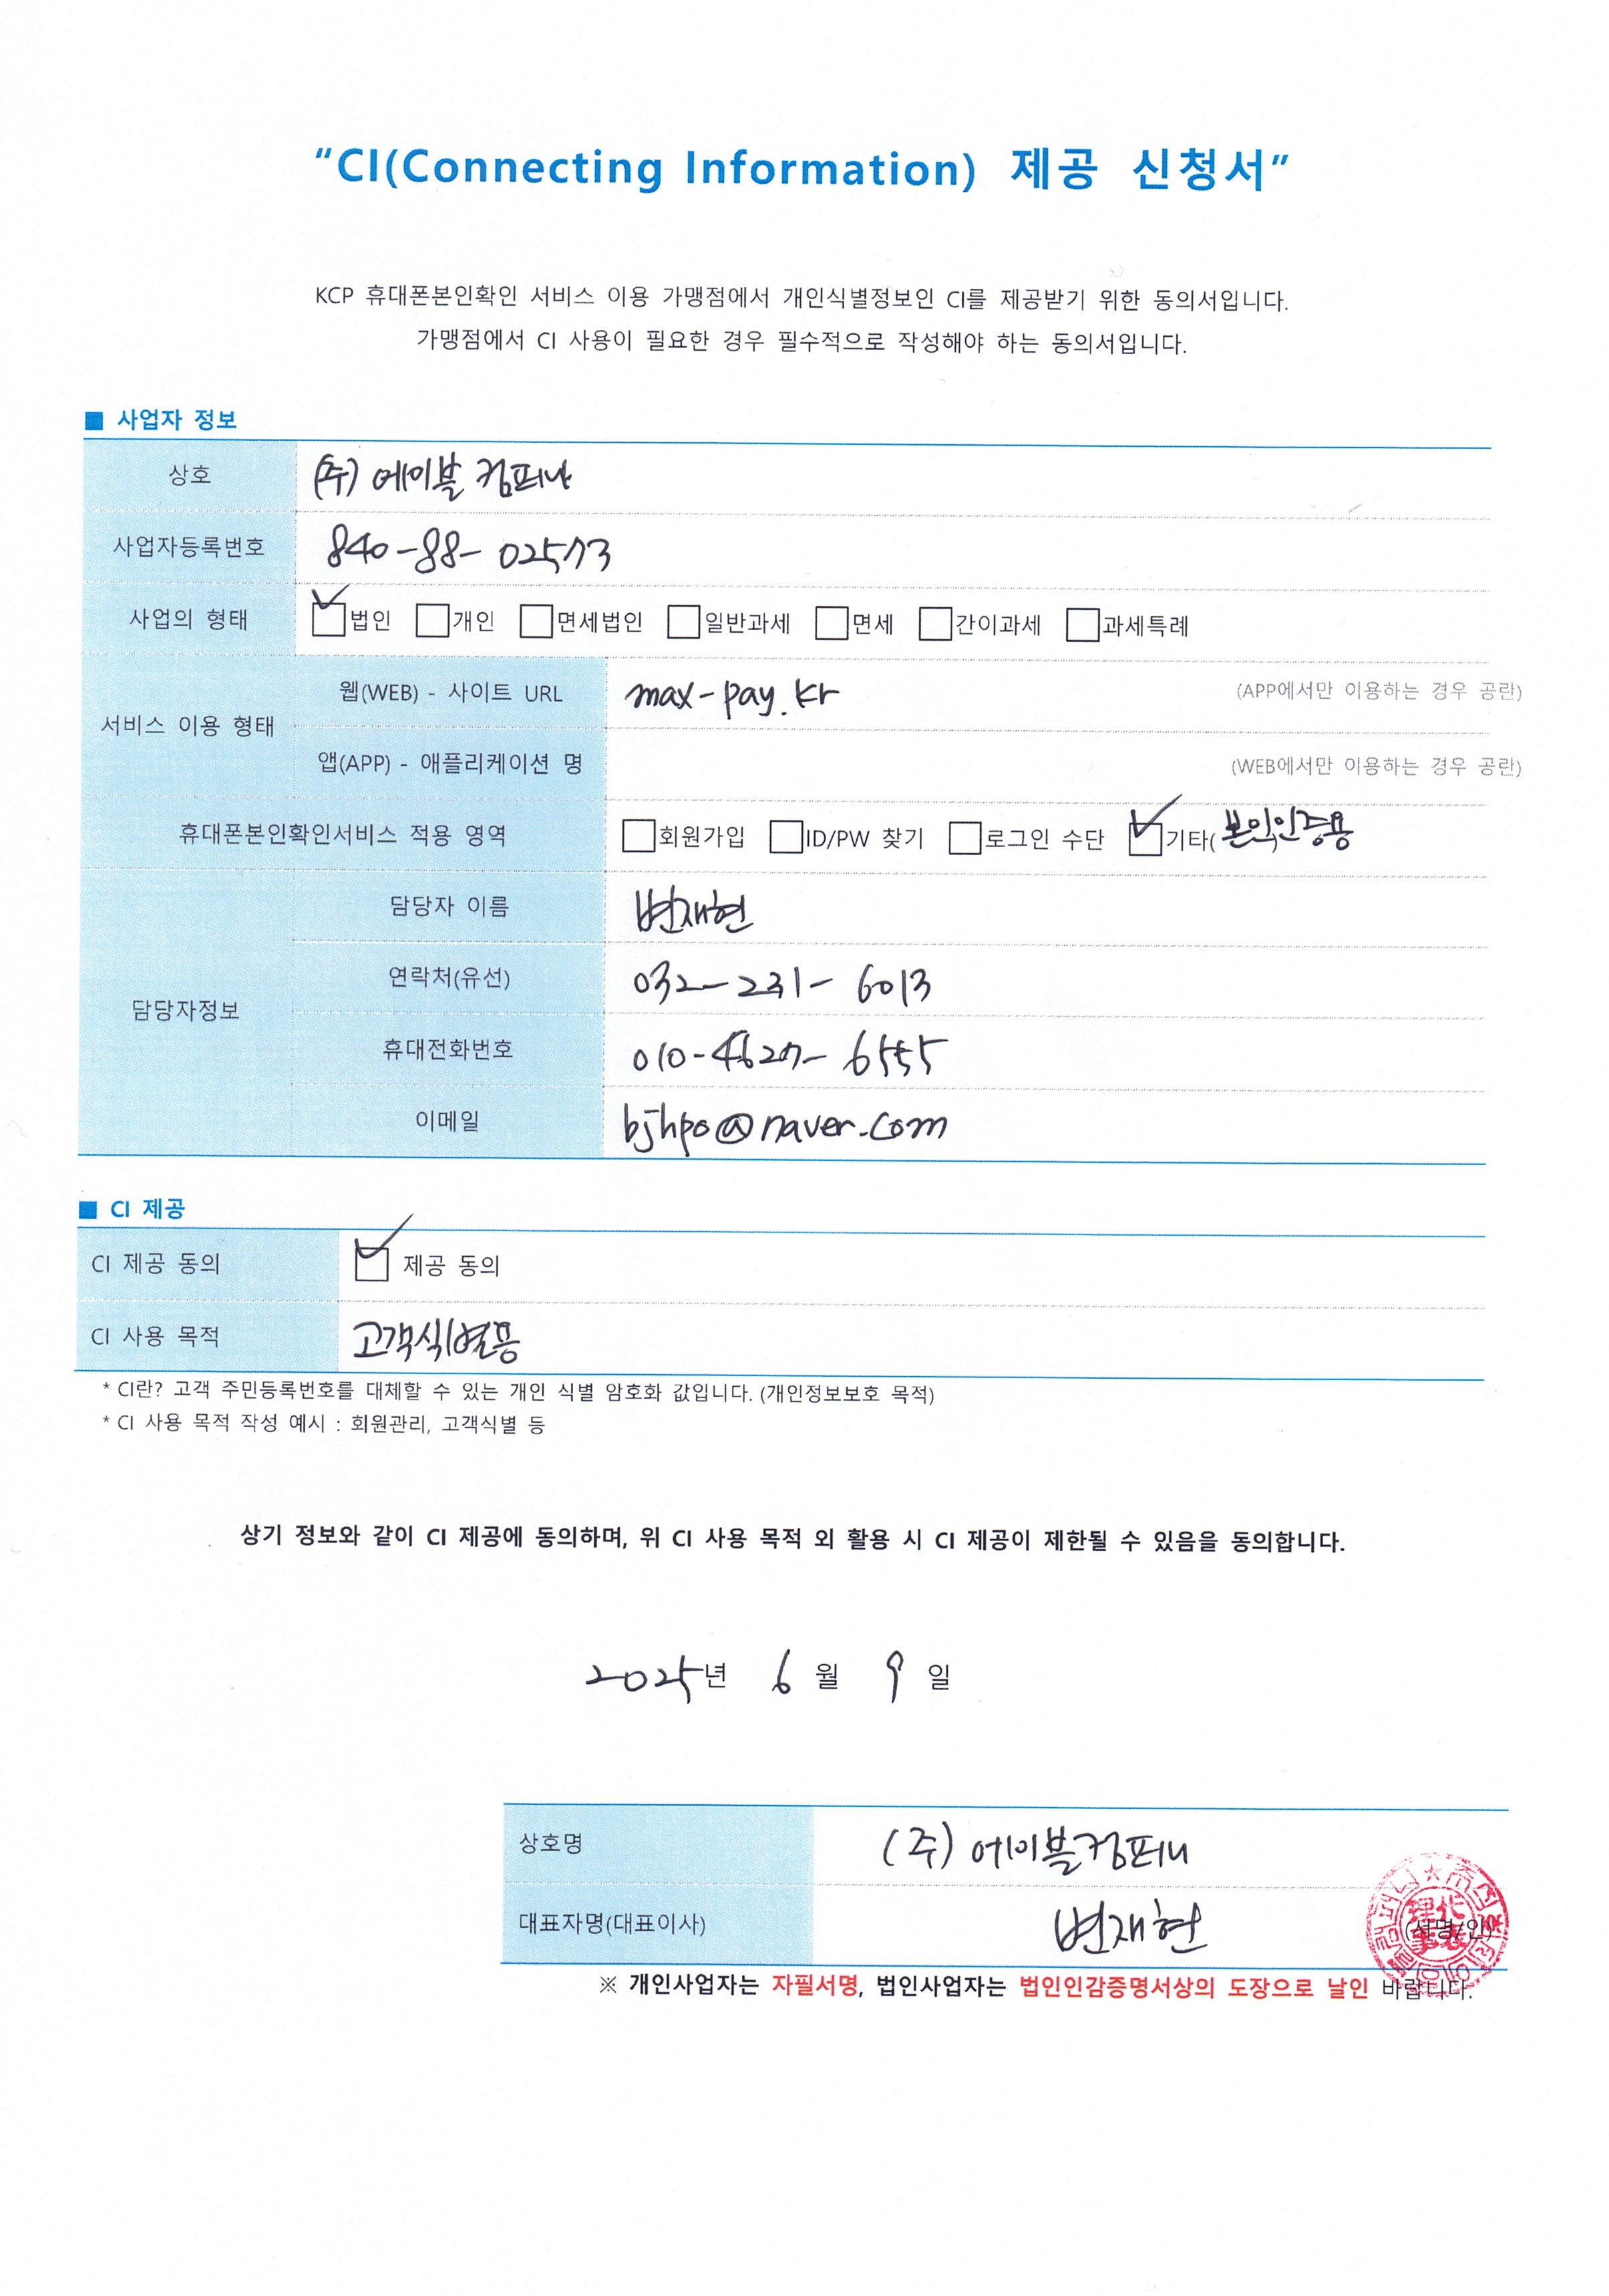 “CI(Connecting Information) 제공 신청서”
KCP 휴대폰본인확인 서비스 이용 가맹점에서 개인식별정보인 CI를 제공받기 위한 동의서입니다.
가맹점에서 CI 사용이 필요한 경우 필수적으로 작성해야 하는 동의서입니다.
■ 사업자 정보
상호 (주) 에이블 컴퍼니
사업자등록번호 840-88-02573
사업의 형태 법인 개인 면세법인 일반과세 면세 간이과세 과세특례
서비스 이용 형태
웹(WEB) - 사이트 URL max-pay.kr (APP에서만 이용하는 경우 공란)
앱(APP) - 애플리케이션 명 (WEB에서만 이용하는 경우 공란)
휴대폰본인확인서비스 적용 영역 회원가입 ID/PW 찾기 로그인 수단 기타(본인인증용)
담당자정보
담당자 이름 변재현
연락처(유선) 032-231-6013
휴대전화번호 010-4627-6555
이메일 bjhpo@naver.com
■ CI 제공
CI 제공 동의 제공 동의
CI 사용 목적 고객식별용
* CI란? 고객 주민등록번호를 대체할 수 있는 개인 식별 암호화 값입니다. (개인정보보호 목적)
* CI 사용 목적 작성 예시 : 회원관리, 고객식별 등
상기 정보와 같이 CI 제공에 동의하며, 위 CI 사용 목적 외 활용 시 CI 제공이 제한될 수 있음을 동의합니다.
2025년 6월 9일
상호명 (주) 에이블컴퍼니
대표자명(대표이사) 변재현 (서명/인)
※ 개인사업자는 자필서명, 법인사업자는 법인인감증명서상의 도장으로 날인 바랍니다.